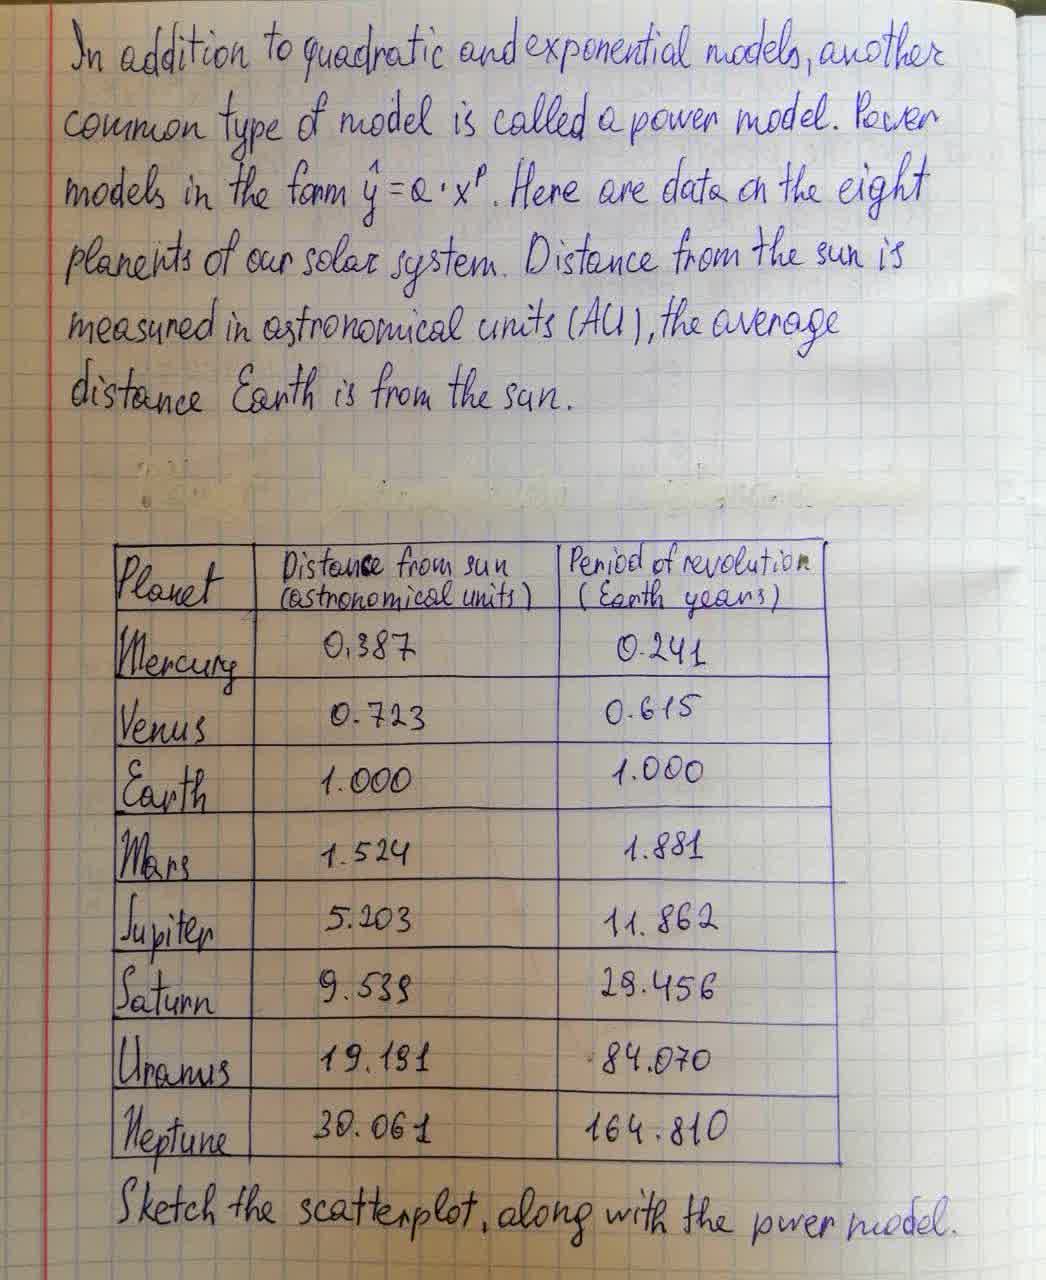 In addition to quadratic and exponential models, another
common type of model is called a power model. Power
models in the form ŷ = a · xᵖ. Here are data on the eight
planents of our solar system. Distance from the sun is
measured in astronomical units (AU), the average
distance Earth is from the sun.
Planet Distance from sun (astronomical units) Period of revolution (Earth years)
Mercury 0.387 0.241
Venus 0.723 0.615
Earth 1.000 1.000
Mars 1.524 1.881
Jupiter 5.203 11.862
Saturn 9.539 29.456
Uranus 19.191 84.070
Neptune 30.061 164.810
Sketch the scatterplot, along with the pwer model.